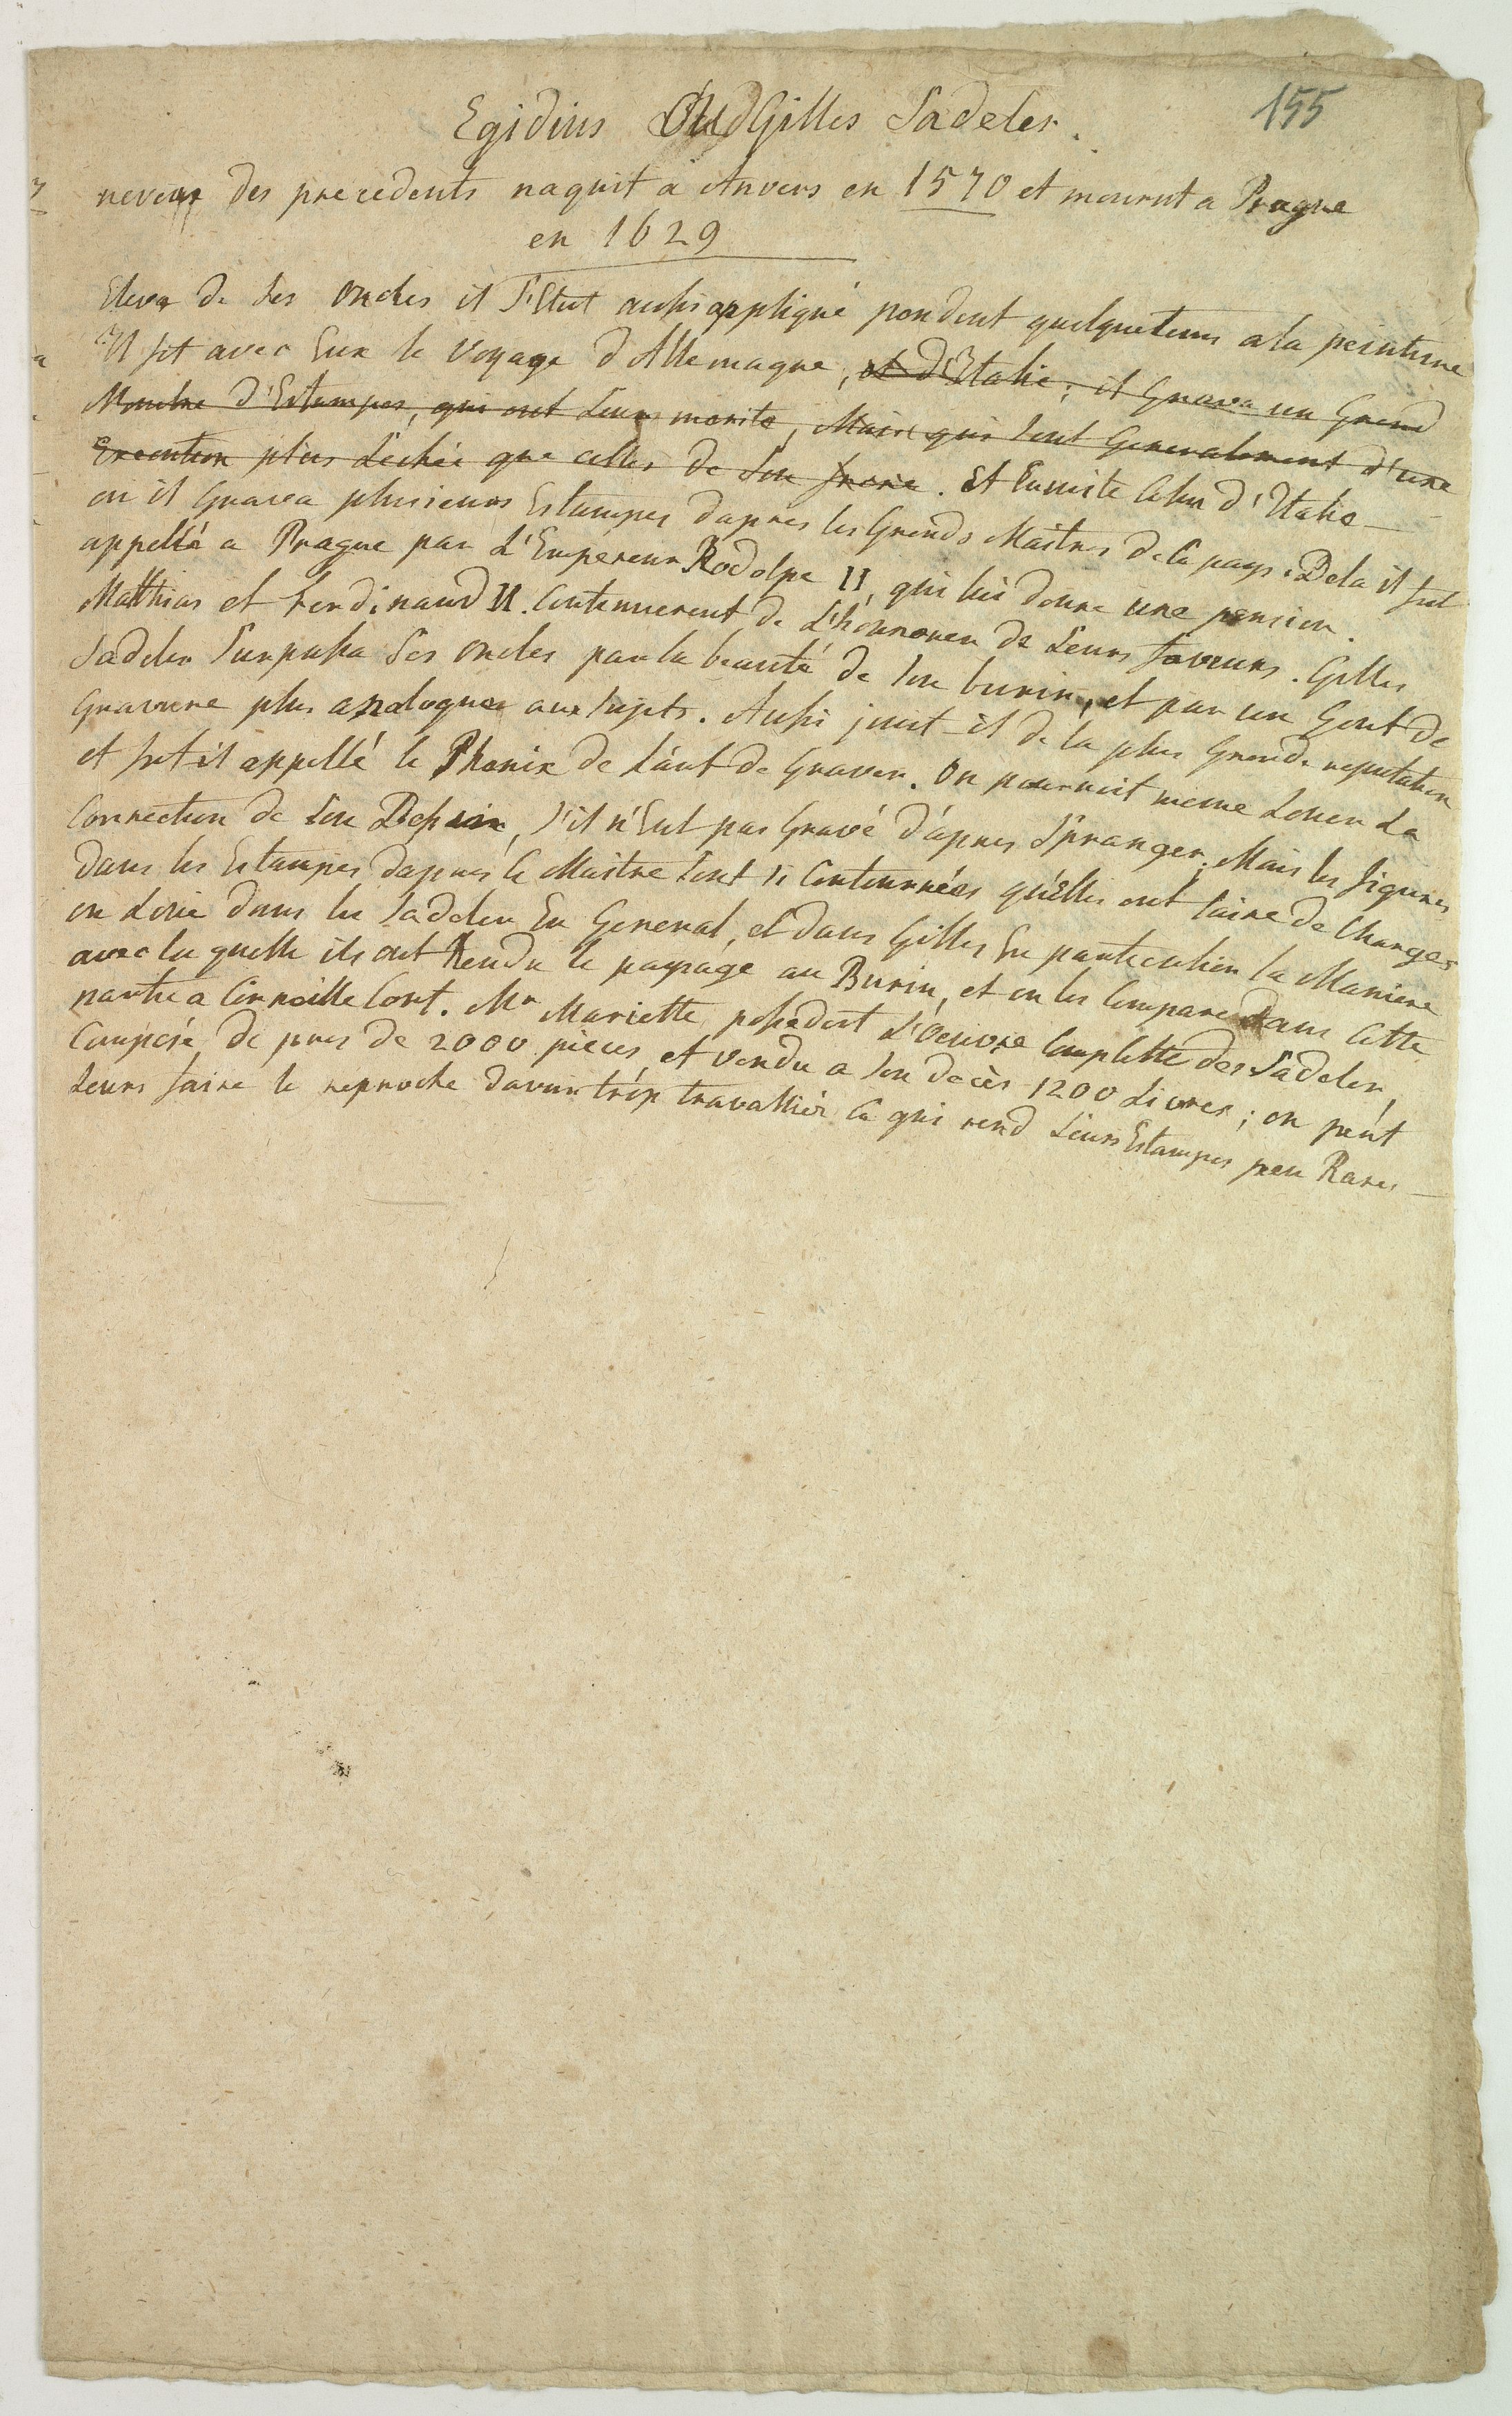 155
Egidius Oud Gilles Sadeler.
neveux des precedents naquit a Anvers en 1570 et mourut a Prague
en 1629
Eleve de Ses Oncles il S'Etut aussi appliqué pendent quelquetems a la peinture
Il fit avec Eux le Voyage d'Allemagne, et d'Italie; il Grava un Grand
Nombre d'Estampes, qui ont Leurs merite, Mais qui Sont Generalement d'une
Execution plus Lechée que celles de Son frere. Et Ensuite Celui d'Italie
ou il Grava plusieurs Estampes dapres les Grends Maitres de Ce pays. De la il fut
appellé a Prague par L'Empereur Rodolpe II, qui lui donna une pension.
Matthias et Ferdinand II. Continuerent de L'honnorer de Leurs faveurs. Gilles
Sadeler Surpassa Ses Oncles par la beauté de Son burin, et par un Gout de
Gravure plus analogue aux Sujets. Aussi jouit-il de la plus Grende reputation
et fut il appellé le Phenix de L'art de Graver. On pourroit meme Louer La
Correction de Son Dessein, S'il n'Eut pas Gravé d'apres Spranger. Mais les figures
dans les Estampes dapres ce Maitre Sont Si Contournées qu'Elles ont l'aire de Charges
on Loue dans les Sadeler En General, et dans Gilles En particulier la Maniere
avec la quelle ils ont Rendu le paysage au Burin, et on les Compare dans Cette
partie a Corneille Cort. Mr Mariette possedoit L'Oeuvre Complette des Sadeler,
Composé de pres de 2000 pieces et vendu a Son decès 1200 Livres; on peut
Leurs faire le reproche davoir trop travaillier Ce qui rend Leurs Estampes peu Rares